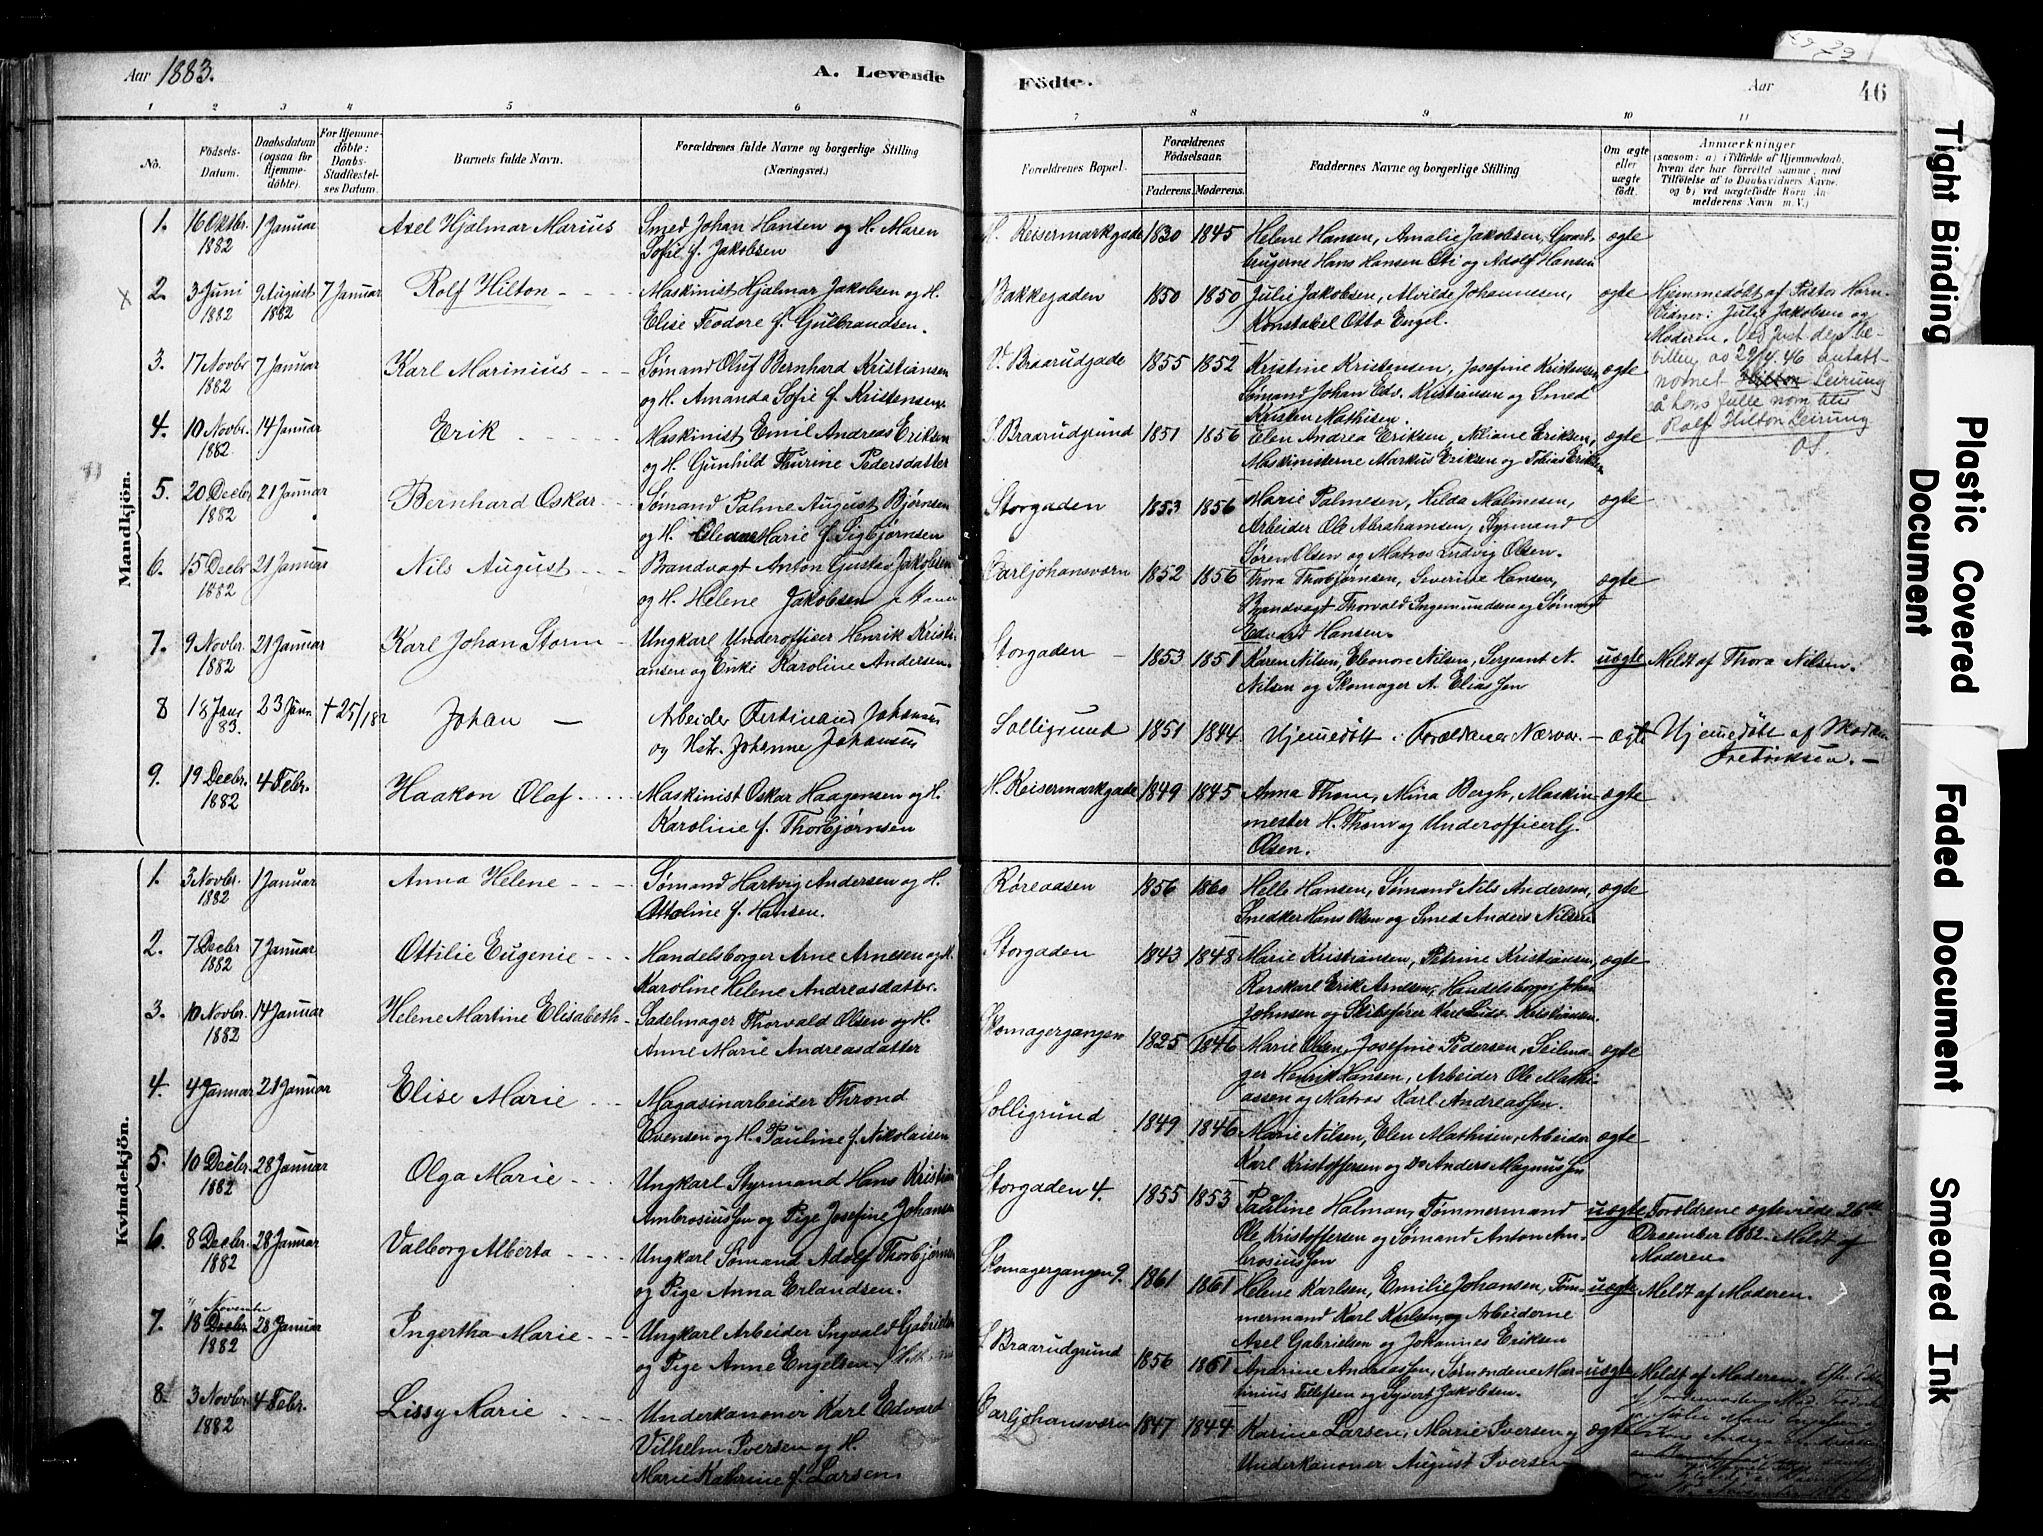 Aar 1883.
A. Levende
Fødte.
Aar
46
1 2 3 4 5 6 7 8 9 10 11
No.
Fødsels-Datum.
Daabsdatum (ogsaa for Hjemme-døbte).
For Hjemme-døbte: Daabs-Stadfæstel-ses Datum.
Barnets fulde Navn.
Forældrenes fulde Navne og borgerlige Stilling (Næringsvei.)
Forældrenes Bopæl.
Forældrenes Fødselsaar.
Faderens. Moderens.
Faddernes Navne og borgerlige Stilling
Om ægte eller uægte født.
Anmærkninger
(saasom: a) i Tilfælde af Hjemmedaab, hvem der har forrettet samme, med Tilføielse af to Daabsvidners Navne, og b) ved uægtefødte Børn Anmelderens Navn m. V.)
Mandkjön.
1. 16 Oktbr. 1882 1 Januar Axel Hjalmar Marius Smed Johan Hansen og H. Maren
Sofie f. Jakobsen
H. Keisermarkgade 1830 1845 Helene Hansen, Amalie Jakobsen, Gaard-
brugerne Hans Hansen Eti og Adolf Hansen
ægte
2. 3 Juni 1882 9 August 1882 7 Januar Rolf Hilton Maskinist Hjalmar Jakobsen og H.
Elise Teodore f. Gulbrandsen.
Bakkegaden 1850 1850 Julie Jakobsen, Alvilde Johannesen,
Konstabel Otto Engel.
ægte Hjemmedøbt af Pastor Horn.
Vidner: Julie Jakobsen og
Moderen. Ved just. dep. be-
villing av 29/4. 46 antatt
navnet Hilton Leirung
så hans fulle navn blir
Rolf Hilton Leirung
3. 17 Novbr 1882 7 Januar Karl Marinius Sømand Oluf Bernhard Kristiansen
og H. Amanda Sofie f. Kristensen.
V. Braarudgade 1855 1852 Kristine Kristensen, Josefine Kristensen,
Sømand Johan Edv. Kristiansen og Smed
Kristen Mathisen.
ægte
4. 10 Novbr. 1882 14 Januar Erik Maskinist Emil Andreas Eriksen
og H. Gunhild Thurine Pedersdatter
S. Braarudgrund 1851 1856 Elen Andrea Eriksen, Niliane Eriksen,
Maskinisterne Markus Eriksen og Tobias Eriksen
ægte
5. 20 Decbr. 1882 21 Januar Bernhard Oskar Sømand Palme August Bjørnsen
og H. Eleane Marie f. Sigbjørnsen
Storgaden 1853 1856 Marie Palmesen, Hilda Malmesen,
Arbeider Ole Abrahamsen, Styrmand
Søren Olsen og Matros Ludvig Olsen.
ægte
6. 15 Decbr 1882 21 Januar Nils August Brandvagt Anton Gustav Jakobsen
og H. Helene Jakobsen
Carljohansværn 1852 1856 Thora Thorbjørnsen, Severine Hansen,
Brandvagt Thorvald Ingemundsen og Sømand
Edvard Hansen.
ægte
7. 9 Novbr. 1882 21 Januar Karl Johan Storm Ungkarl Underofficer Henrik Kristi-
ansen og Enke Karoline Andersen
Storgaden 1853 1851 Karen Nilsen, Eleonore Nilsen, Sergeant N.
Nilsen og Skomager A. Eliassen
uægte Meldt af Thora Nilsen.
8 18 Janr 83. 23 Janr. † 25/1 82 Johan — Arbeider Ferdinand Johansen
og Hstr. Johanne Johansen
Solligrund 1851 1844. Hjemedøbt i Forældrenes Nærvær. ægte Hjemedøbt af Madam
Fredriksen.
9. 19 Decbr. 1882 4 Febr. Haakon Olaf Maskinist Oskar Haagensen og H.
Karoline f. Thorbjørnsen
H. Keisermarkgade 1849 1845 Anna Thom, Mina Bergh, Maskin-
mester H. Thom og Underofficer G.
Olsen.
ægte
Kvindekjön.
1. 3 Novbr. 1882 1 Januar Anna Helene Sømand Hartvig Andersen og H.
Ottoline f. Hansen.
Røreaasen 1856 1860 Helle Hansen, Sømand Nils Andersen,
Snedker Hans Olsen og Smed Anders Nilsen
ægte
2. 7 Decbr 1882 7 Januar Ottilie Eugenie Handelsborger Arne Arnesen og H.
Karoline Helene Andreasdatter.
Storgaden 1843 1848 Marie Kristiansen, Petrine Kristiansen,
Rorskarl Erik Arnesen, Handelsborger Johan
Johnsen og Skibsfører Karl Ludv. Kristiansen.
ægte
3. 10 Novbr. 1882 14 Januar Helene Martine Elisabeth Sadelmager Thorvald Olsen og H.
Anne Marie Andreasdatter
Skomagergangen 1825 1846 Marie Olsen, Josefine Pedersen, Seilma-
ger Henrik Hansen, Arbeider Ole Mathi-
assen og Matros Karl Andreassen.
ægte
4. 4 Januar 21 Januar Elise Marie Magasinarbeider Thrond
Evensen og H. Pauline f. Nikolaisen
Solligrund 1849 1846 Marie Nilsen, Elen Mathisen, Arbeider
Karl Kristoffersen og Do Anders Magnussen
ægte
5. 10 Decbr. 1882 28 Januar Olga Marie Ungkarl Styrmand Hans Kristian
Ambrosiussen og Pige Josefine Johansen
Storgaden 4. 1855 1853 Pauline Halman, Tømmermand
Ole Kristoffersen og Sømand Anton Am-
brosiussen
uægte Forældrene ægteviede 26de
December 1882. Meldt af
Moderen.
6. 8 Decbr. 1882 28 Januar Valborg Alberta Ungkarl Sømand Adolf Thorbjørnsen
og Pige Anna Erlandsen.
Skomagergangen 9. 1861 1861 Helene Karlsen, Emilie Johansen, Tøm-
mermand Karl Karlsen og Arbeiderne
Axel Gabrielsen og Johannes Eriksen
uægte Meldt af Moderen.
7. 18 Decbr. November 1882 28 Januar Ingertha Marie Ungkarl Arbeider Ingvald Gabrielsen
og Pige Anne Engelsen
S. Braarudgrund 1856 1861 Andrine Andreassen, Sømændene Mar-
tinius Tellefsen og Syvert Jakobsen.
uægte Meldt af Moderen.
8. 3 Novbr. 1882 4 Febr. Lissy Marie Underkanoner Karl Edvard
Vilhelm Iversen og H.
Marie Kathrine f. Larsen
Carljohansværn 1847 1844 Karine Larsen, Marie Iversen og
Underkanoner August Iversen
ægte
Tight Binding
Plastic Covered Document
Faded Document
Smeared Ink